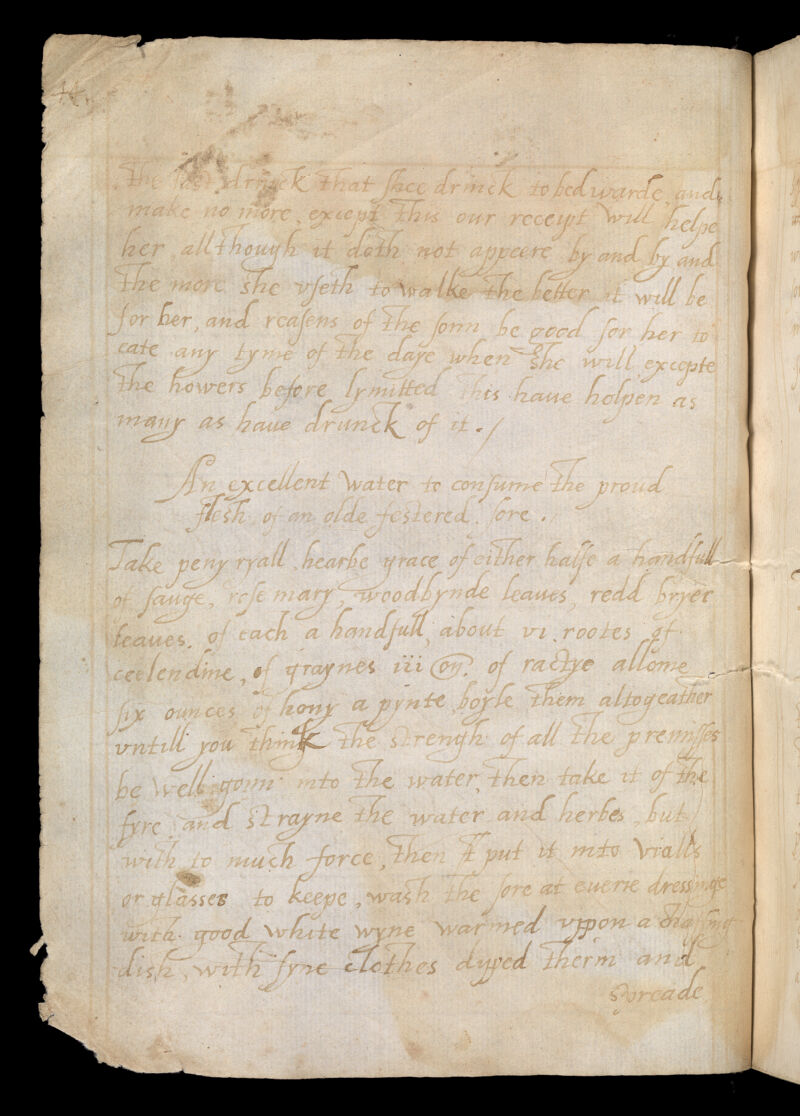 44.
The last drinck that shee drinck to bedwarde, and
make no more, except this our receypt will helpe
her, allthough it doth not appeere by and by and
the more she vseth to walke the better it will be
for her, and reasens of the sonn be good for her to
eate any tyme of the daye when she will excepte
the howers before lymitted this haue holpen as
many as haue drunck of it ./
An excellent water to consume the proud
flesh of an olde festered sore .
Take peny ryall, hearbe grace of either halfe a handfull
of sauge, rosemary, woodbynde leaues, redd bryer
leaues, of each a handfull, about vi rootes of
ceelendine, of graynes iii oȝ. of roctye allome
six ounces of hony a pynte boyle them altogeather
vntill you think the strengh of all the premisses
be well gonn into the water, then take it of the
fyre, and strayne the water and herbes, but
with to much force, then put it into vialls
or glasses to keepe, wash the sore at euerie dressinge
with good white wyne warmed vppon a chafing
dish, with fyne clothes dyped therin and
spreade